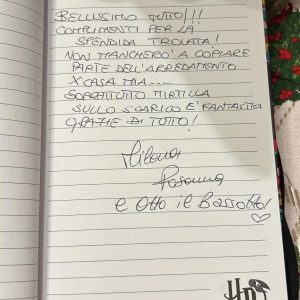 BELLISSIMO TUTTO!!!
COMPLIMENTI PER LA
SPENDIDA TROVATA!
NON MANCHERÒ A COPIARE
PARTE DELL'ARREDAMENTO
X CASA MIA....
SOPRATTUTTO MIRTILLA
SULLO SCARICO È FANTASTICA
GRAZIE DI TUTTO!
Milena
Rosanna
e Otto il Bassotto!